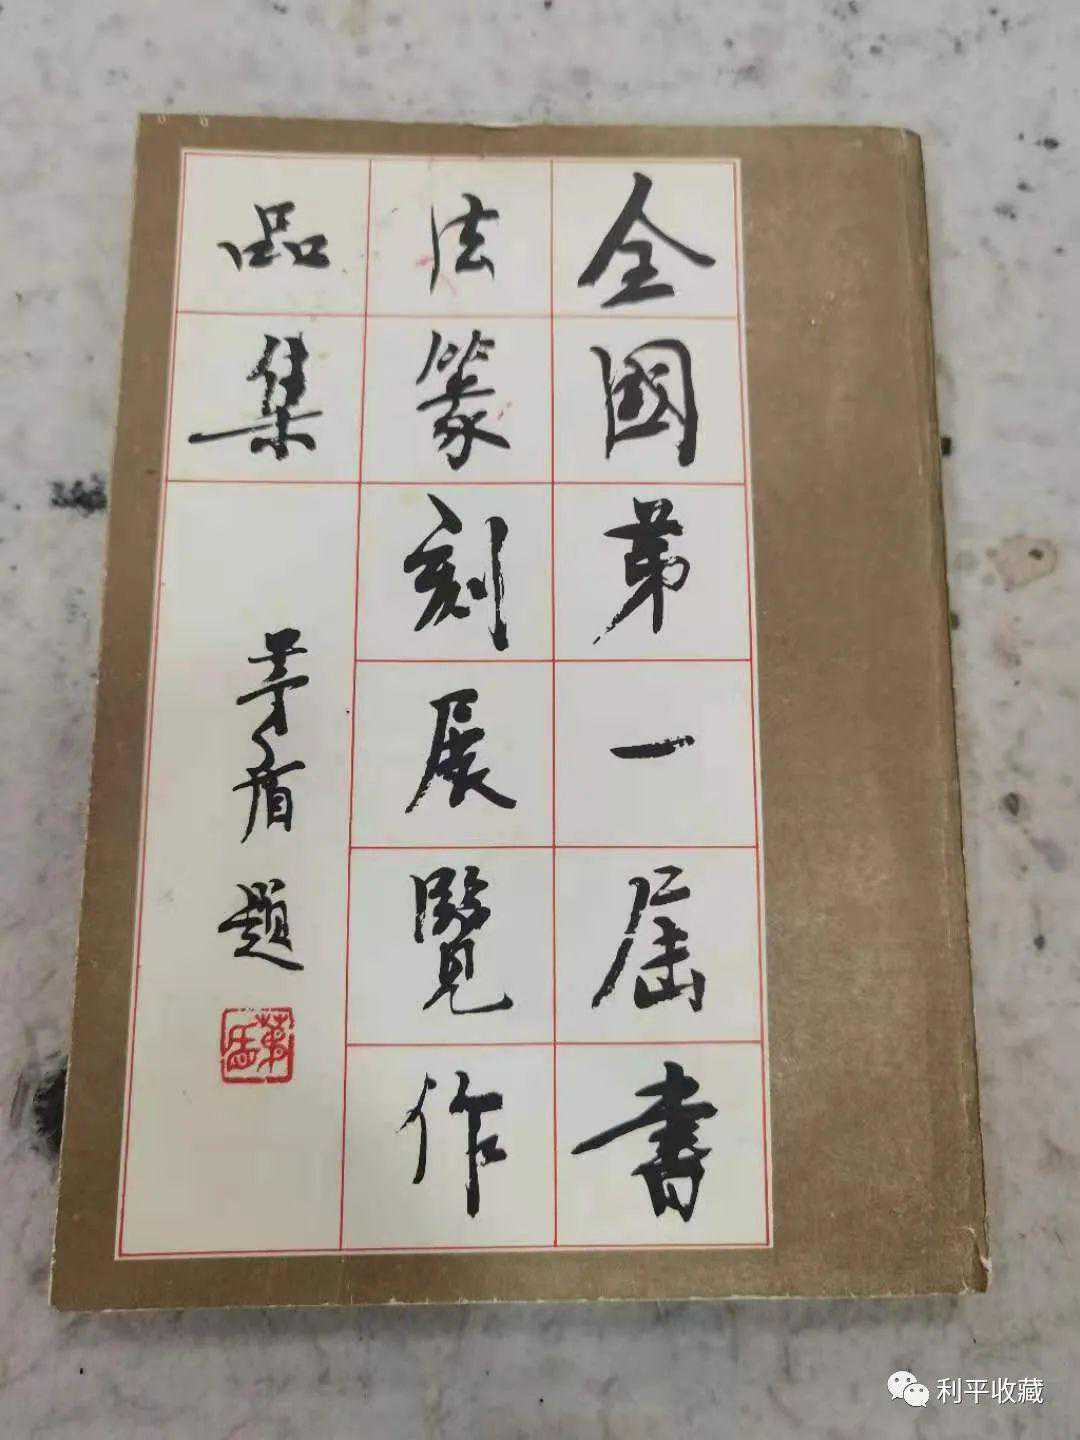 全國第一屆書
法篆刻展覽作
品集
茅盾題
利平收藏